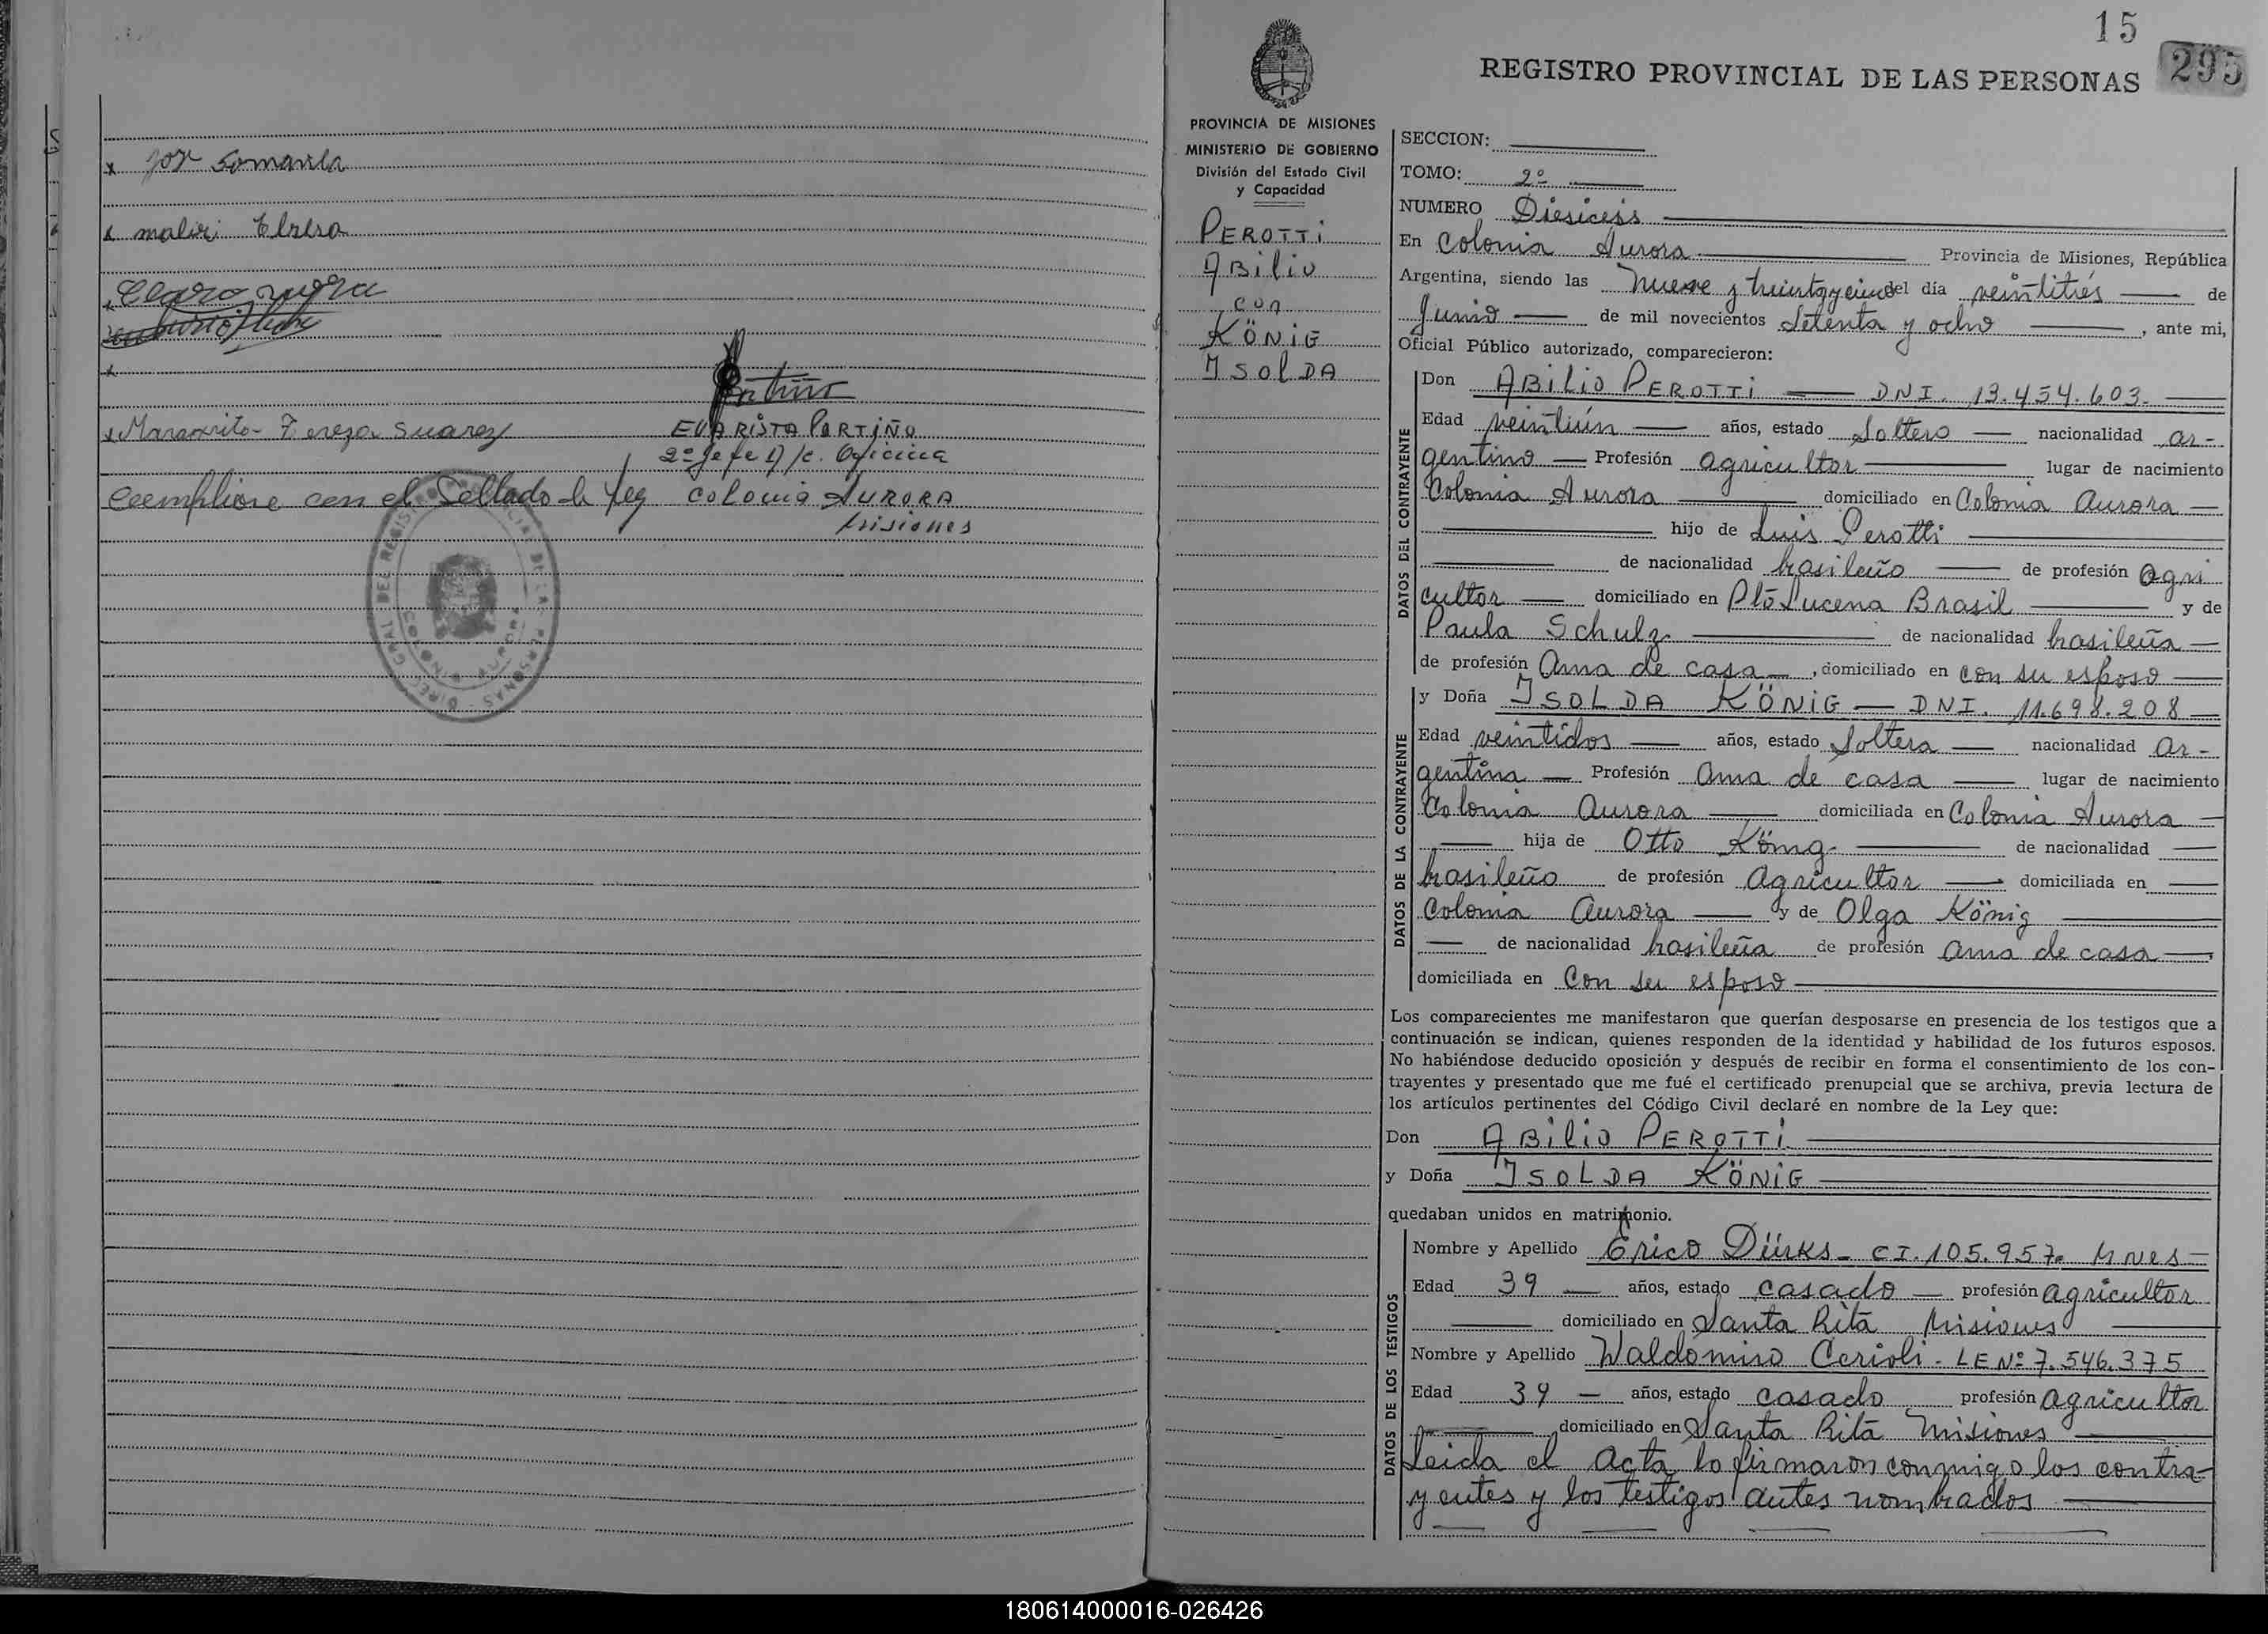 x Jose
x Maliri Elzira
x Margarita Tereza Suarez
EVARISTA PORTIÑO
2º Jefe A/c. Oficina
Eximpliose con el Sellado de Ley COLONIA AURORA
Misiones
15
REGISTRO PROVINCIAL DE LAS PERSONAS
295
PROVINCIA DE MISIONES
MINISTERIO DE GOBIERNO
División del Estado Civil
y Capacidad
PEROTTi
ABiliO
con
KÖNiG
ISOlDA
SECCION:
TOMO: 2º
NUMERO Diesiceis
En Colonia Aurora Provincia de Misiones, República
Argentina, siendo las Nueve y treinta y cinco del día veintitrés de
Junio de mil novecientos Setenta y ocho, ante mi,
Oficial Público autorizado, comparecieron:
DATOS DEL CONTRAYENTE
Don ABiliO PEROTTi DNI. 13.454.603.
Edad veintiún años, estado Soltero nacionalidad ar-
gentino Profesión agricultor lugar de nacimiento
Colonia Aurora domiciliado en Colonia Aurora
hijo de Luis Perotti
de nacionalidad brasileño de profesión Agri
cultor domiciliado en Ptō Lucena Brasil y de
Paula Schulz de nacionalidad brasileña
de profesión Ama de casa, domiciliado en con su esposo
DATOS DE LA CONTRAYENTE
y Doña ISOLDA KÖNiG DNI. 11.698.208
Edad veintidos años, estado Soltera nacionalidad Ar-
gentina Profesión Ama de casa lugar de nacimiento
Colonia Aurora domiciliada en Colonia Aurora
hija de Otto König de nacionalidad
brasileño de profesión Agricultor domiciliada en
Colonia Aurora y de Olga König
de nacionalidad brasileña de profesión ama de casa
domiciliada en Con su esposo
Los comparecientes me manifestaron que querían desposarse en presencia de los testigos que a
continuación se indican, quienes responden de la identidad y habilidad de los futuros esposos.
No habiéndose deducido oposición y después de recibir en forma el consentimiento de los con-
trayentes y presentado que me fué el certificado prenupcial que se archiva, previa lectura de
los artículos pertinentes del Código Civil declaré en nombre de la Ley que:
Don ABiliO PEROTTi
y Doña ISOLDA KÖNiG
quedaban unidos en matrimonio.
DATOS DE LOS TESTIGOS
Nombre y Apellido Erico Dürks - CI. 105.957. Mnes
Edad 39 años, estado casado profesión agricultor
domiciliado en Santa Rita Misiones
Nombre y Apellido Waldomiro Cerioli - LE Nº 7.546.375
Edad 39 años, estado casado profesión agricultor
domiciliado en Santa Rita Misiones
Leida el Acta lo firmaron conmigo los contra-
yentes y los testigos antes nombrados
180614000016-026426